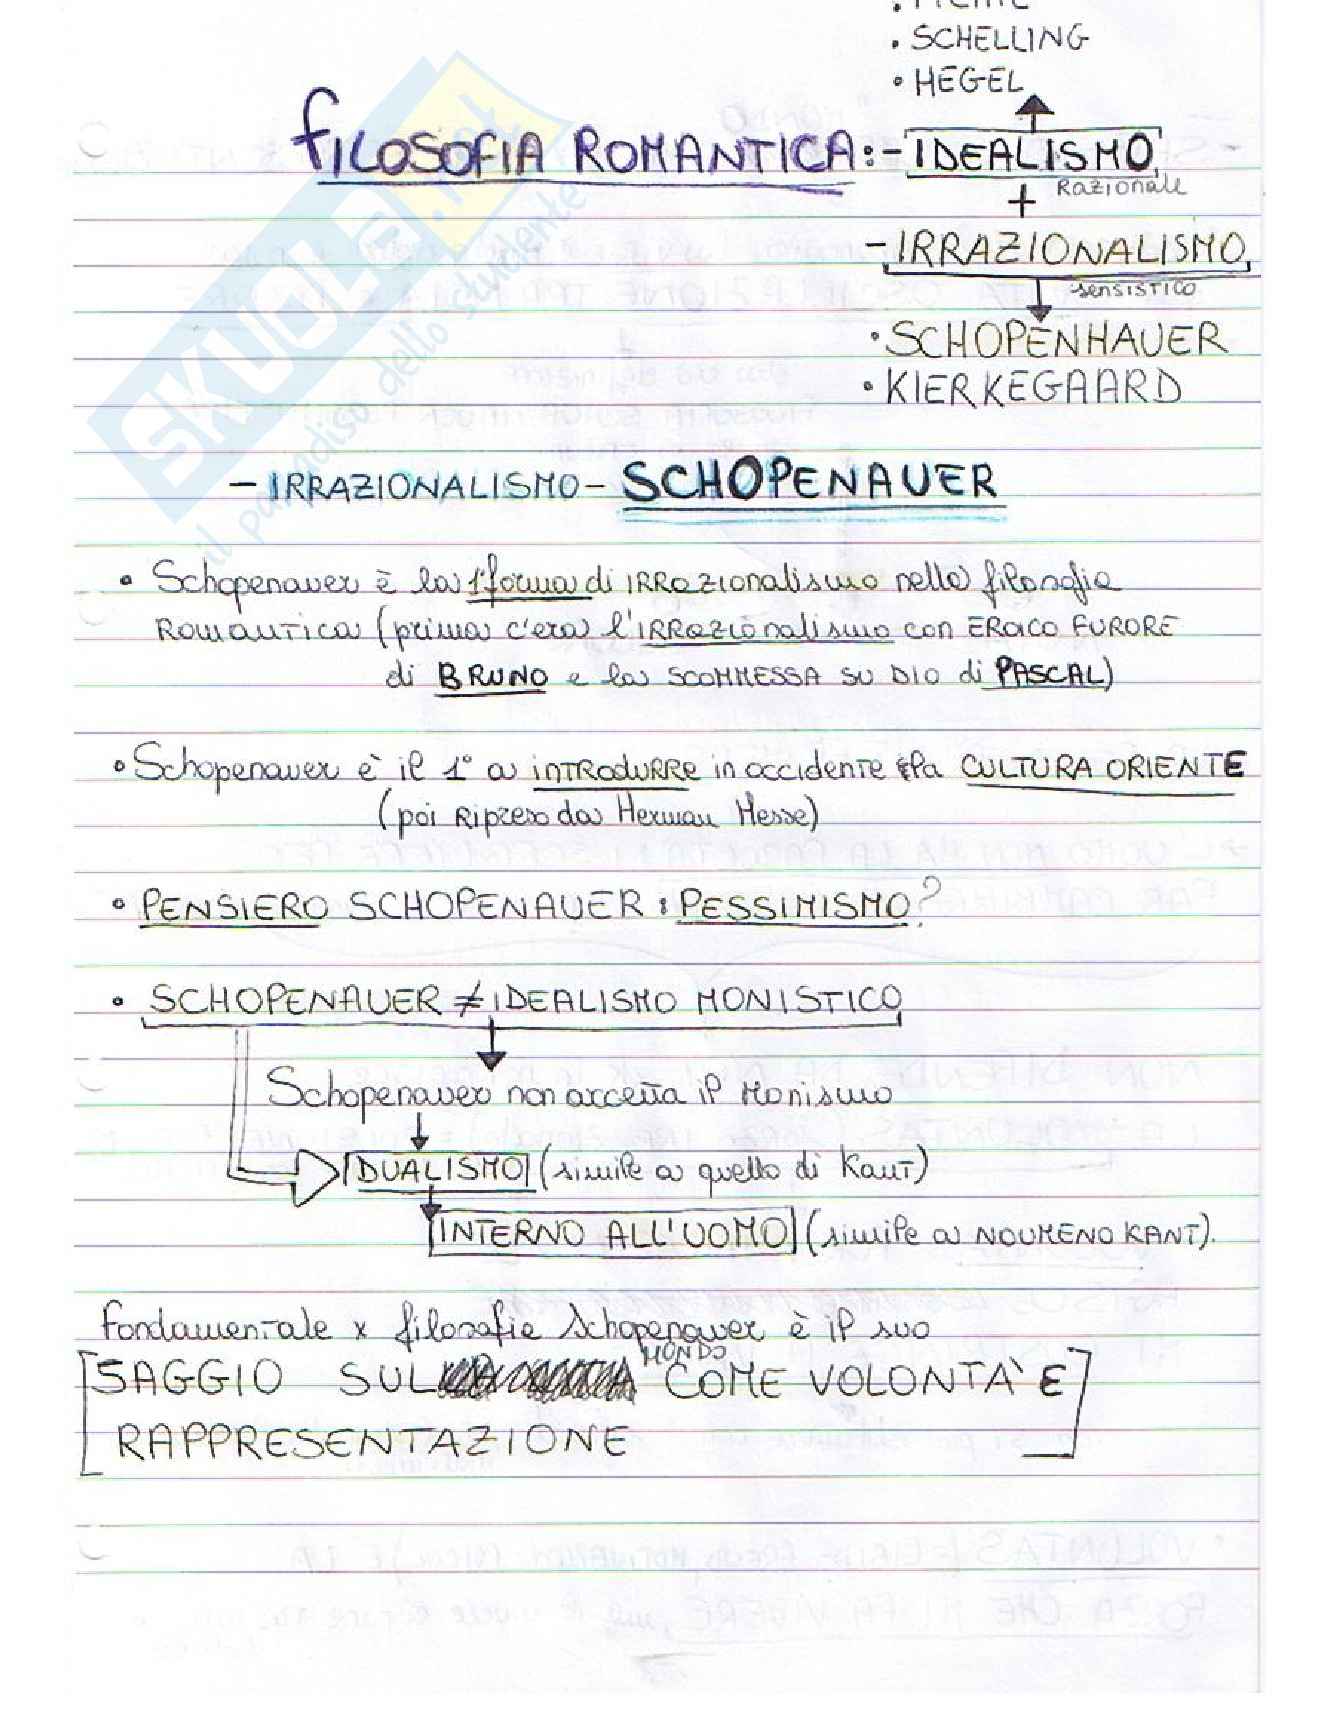 • FICHTE
• SCHELLING
• HEGEL
FILOSOFIA ROMANTICA: - IDEALISMO
Razionale
+
- IRRAZIONALISMO
sensistico
• SCHOPENHAUER
• KIERKEGAARD
- IRRAZIONALISMO - SCHOPENAUER
• Schopenauer è la 1° forma di IRRazionalismo nella filosofia
Romantica (prima c'era l'IRRazionalismo con EROICO FURORE
di BRUNO e la SCOMMESSA SU DIO di PASCAL)
• Schopenauer è il 1° a INTRODURRE in occidente la CULTURA ORIENTE
(poi Ripreso da Herman Hesse)
• PENSIERO SCHOPENAUER : PESSIMISMO?
• SCHOPENAUER ≠ IDEALISMO MONISTICO
Schopenauer non accetta il Monismo
DUALISMO (simile a quello di Kant)
INTERNO ALL'UOMO (simile a NOUMENO KANT).
Fondamentale x filosofia Schopenauer è il suo
SAGGIO SUL MONDO COME VOLONTA' E
RAPPRESENTAZIONE
SKUOLA.net
il paradiso dello studente